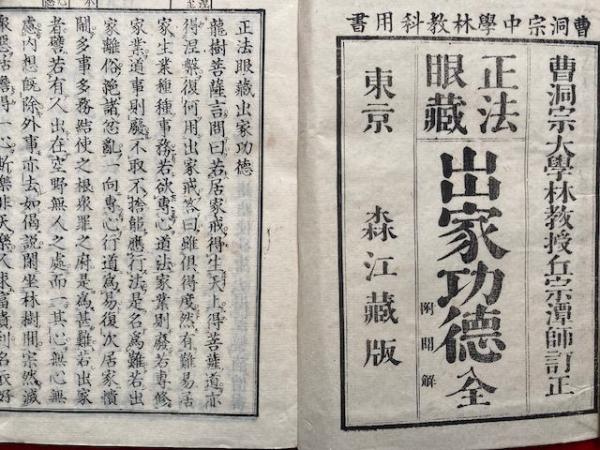 曹洞宗中學林教科用書
曹洞宗大學林教授丘宗潭師訂正
正法
眼藏
出家功德 全
附聞解
東京 森江藏版
正法眼藏出家功德
龍樹菩薩言問曰若居家戒得生天上得菩薩道亦
得涅槃復何用出家戒答曰雖俱得度然有難易居
家生業種種事務若欲專心道法家業則廢若專修
家業道事則廢不取不捨能應行法是名爲難若出
家離俗絕諸忿亂一向專心行道爲易復次居家憒
鬧多事多務結使之根衆罪之府是爲甚難若出家
者譬若有人出在空野無人之處而一其心無心無
慮內想既除外事亦去如偈說閑坐林樹間寂然滅
衆惡恬澹得一心斯樂非天樂人求富貴利名衣好